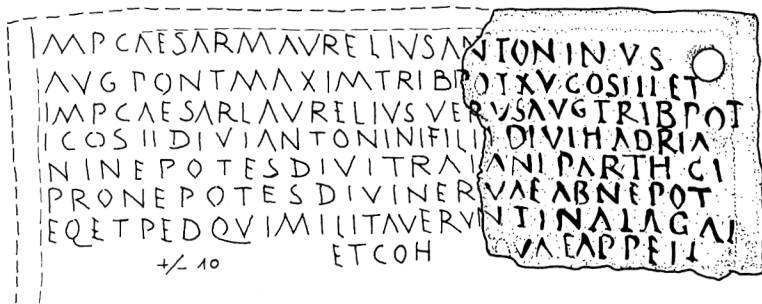 IMPCAESARMAVRELIVSANTONINVS
AVGPONTMAXIMTRIBPOTXVCOSIIIET
IMPCAESARLAVRELIVSVERUSAVGTRIBPOT
ICOSIIDIVIANTONINIFILIIDIVIHADRIA
NINEPOTESDIVITRAIANIPARTHCI
PRONEPOTESDIVINERVAEABNEPOT
EQETPEDQVIMILITAVERVNTINALAGAI
+/- 10 ETCOH VAEAPPEII